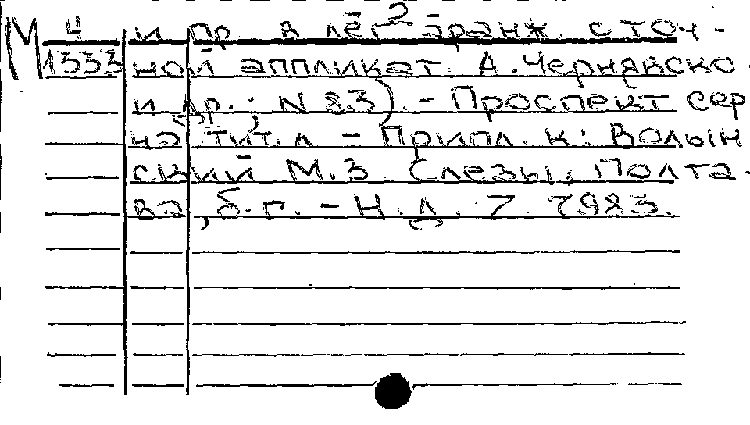 2
М 4 и пр. в лёг. аранж. с точ-
1333 ной аппликат. А. Чернявско-
и др.; N 83). - Проспект сер
на тит. л. - Припл. к: Волын
ский М.З. Слезы. Полта-
ва, б.г. - Н.д. 7. 7983.